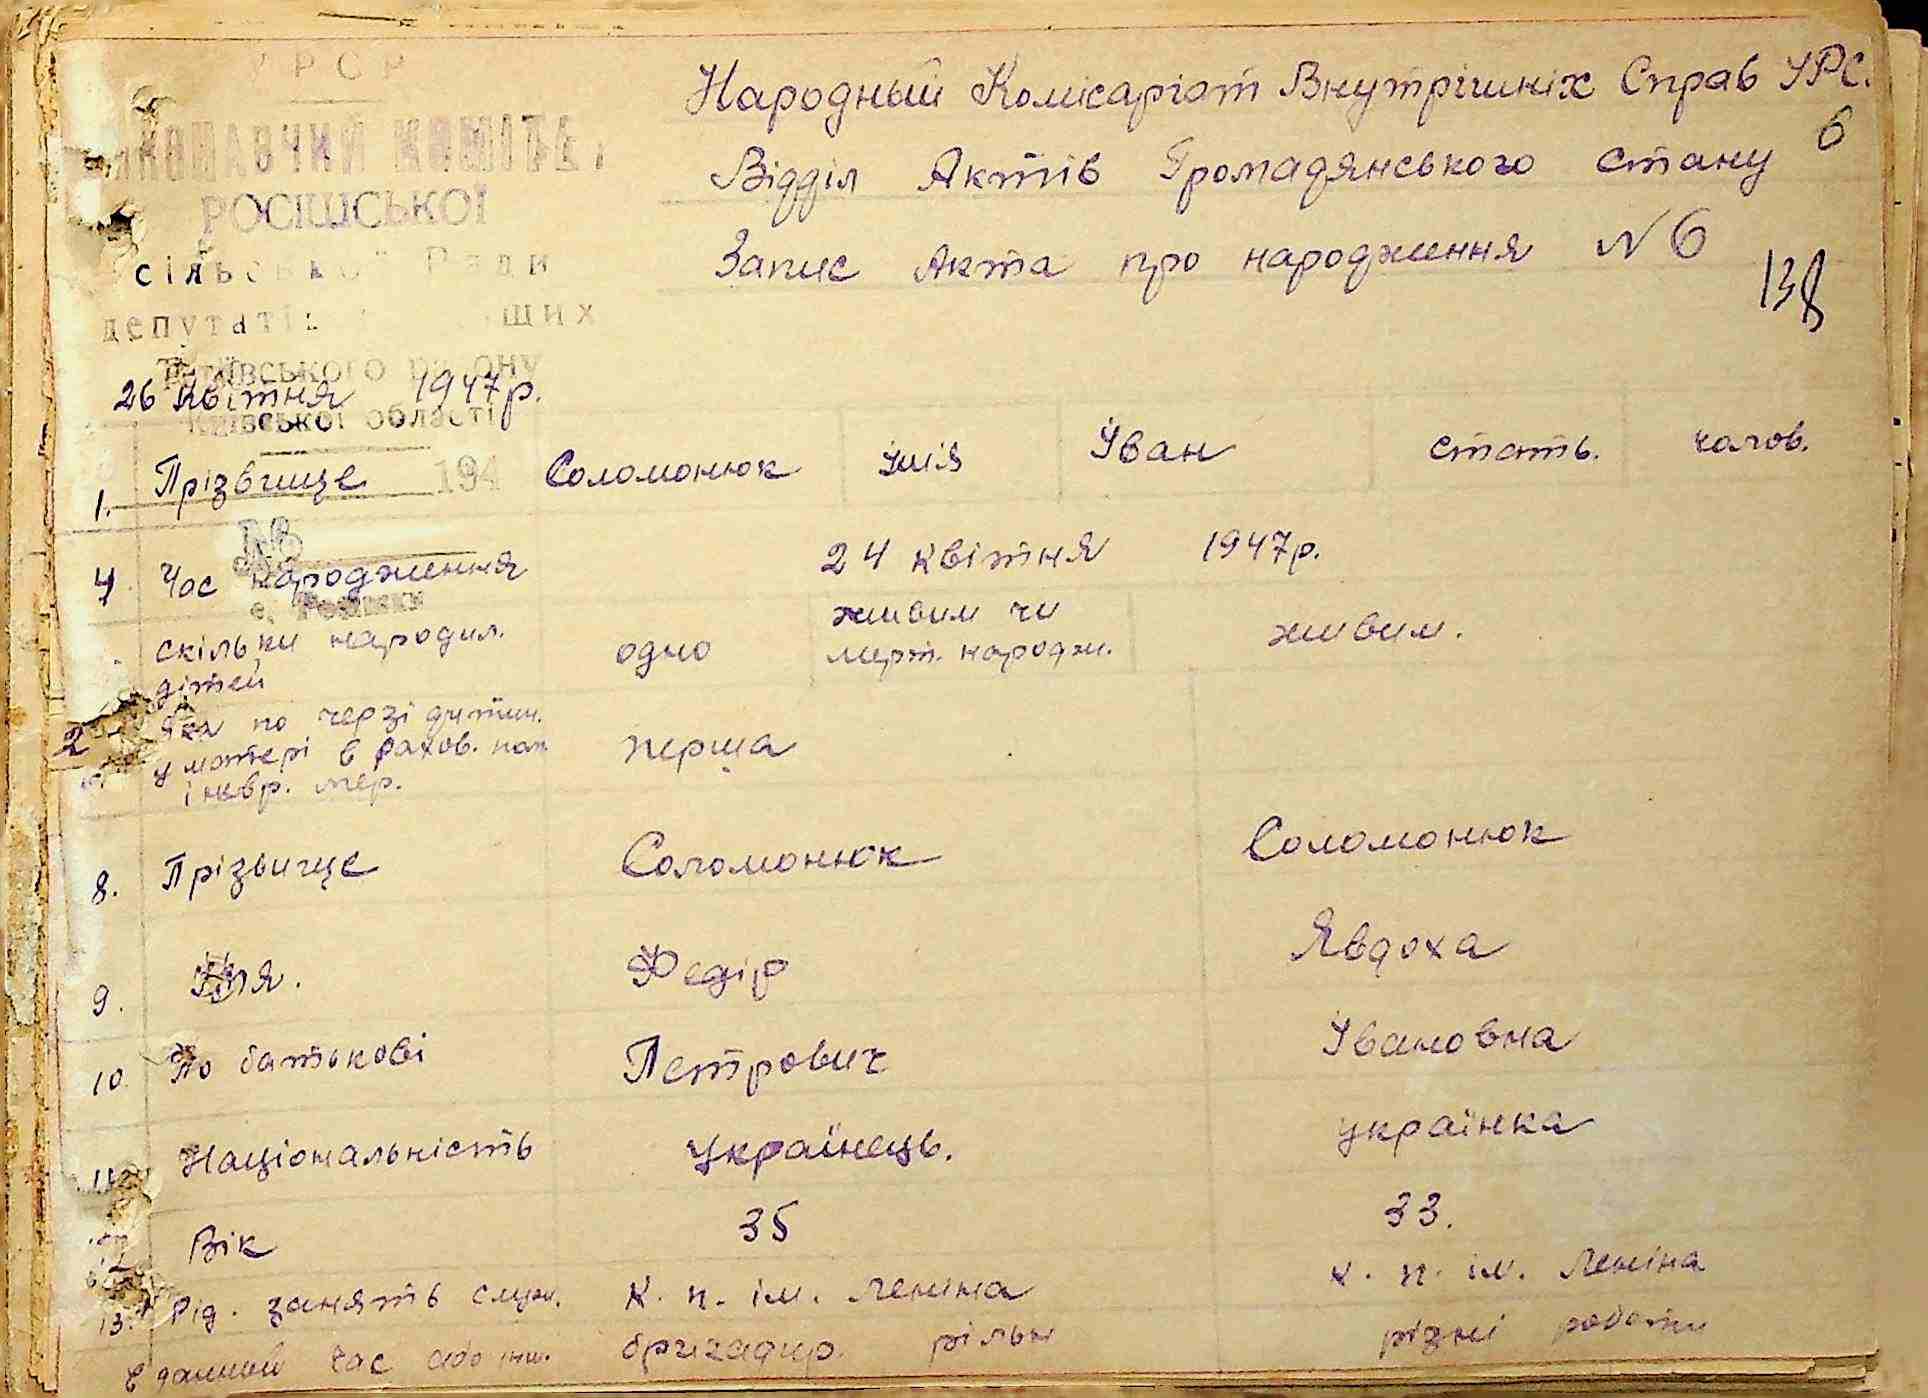 УРСР
Народный Комісаріат Внутрішніх Справ УРС.
6
Відділ Актів Громадянського стану
РОСІШСЬКОЇ
Запис Акта про народження N 6
138
сільської Ради
депутатів
району
26 квітня 1947 р.
Київської області
1. Прізвище 194 Соломонюк імія Іван стать. чолов.
№
4 Час народження 24 квітня 1947 р.
с. Росішки
скільки народил. дітей одно живим чи мерт. народж. живим.
2
5 Яка по черзі дитин. у матері в рахов. пом. перша
8. Прізвище Соломонюк Соломонюк
9. Імя. Федір Явдоха
10 По батькові Петрович Івановна
11 Національність українець. українка
12 Вік 35 33.
13. Рід. занять служ. К. п. ім. Леніна к. п. ім. Леніна
в даний час або інш. бригадир. рільн різні роботи